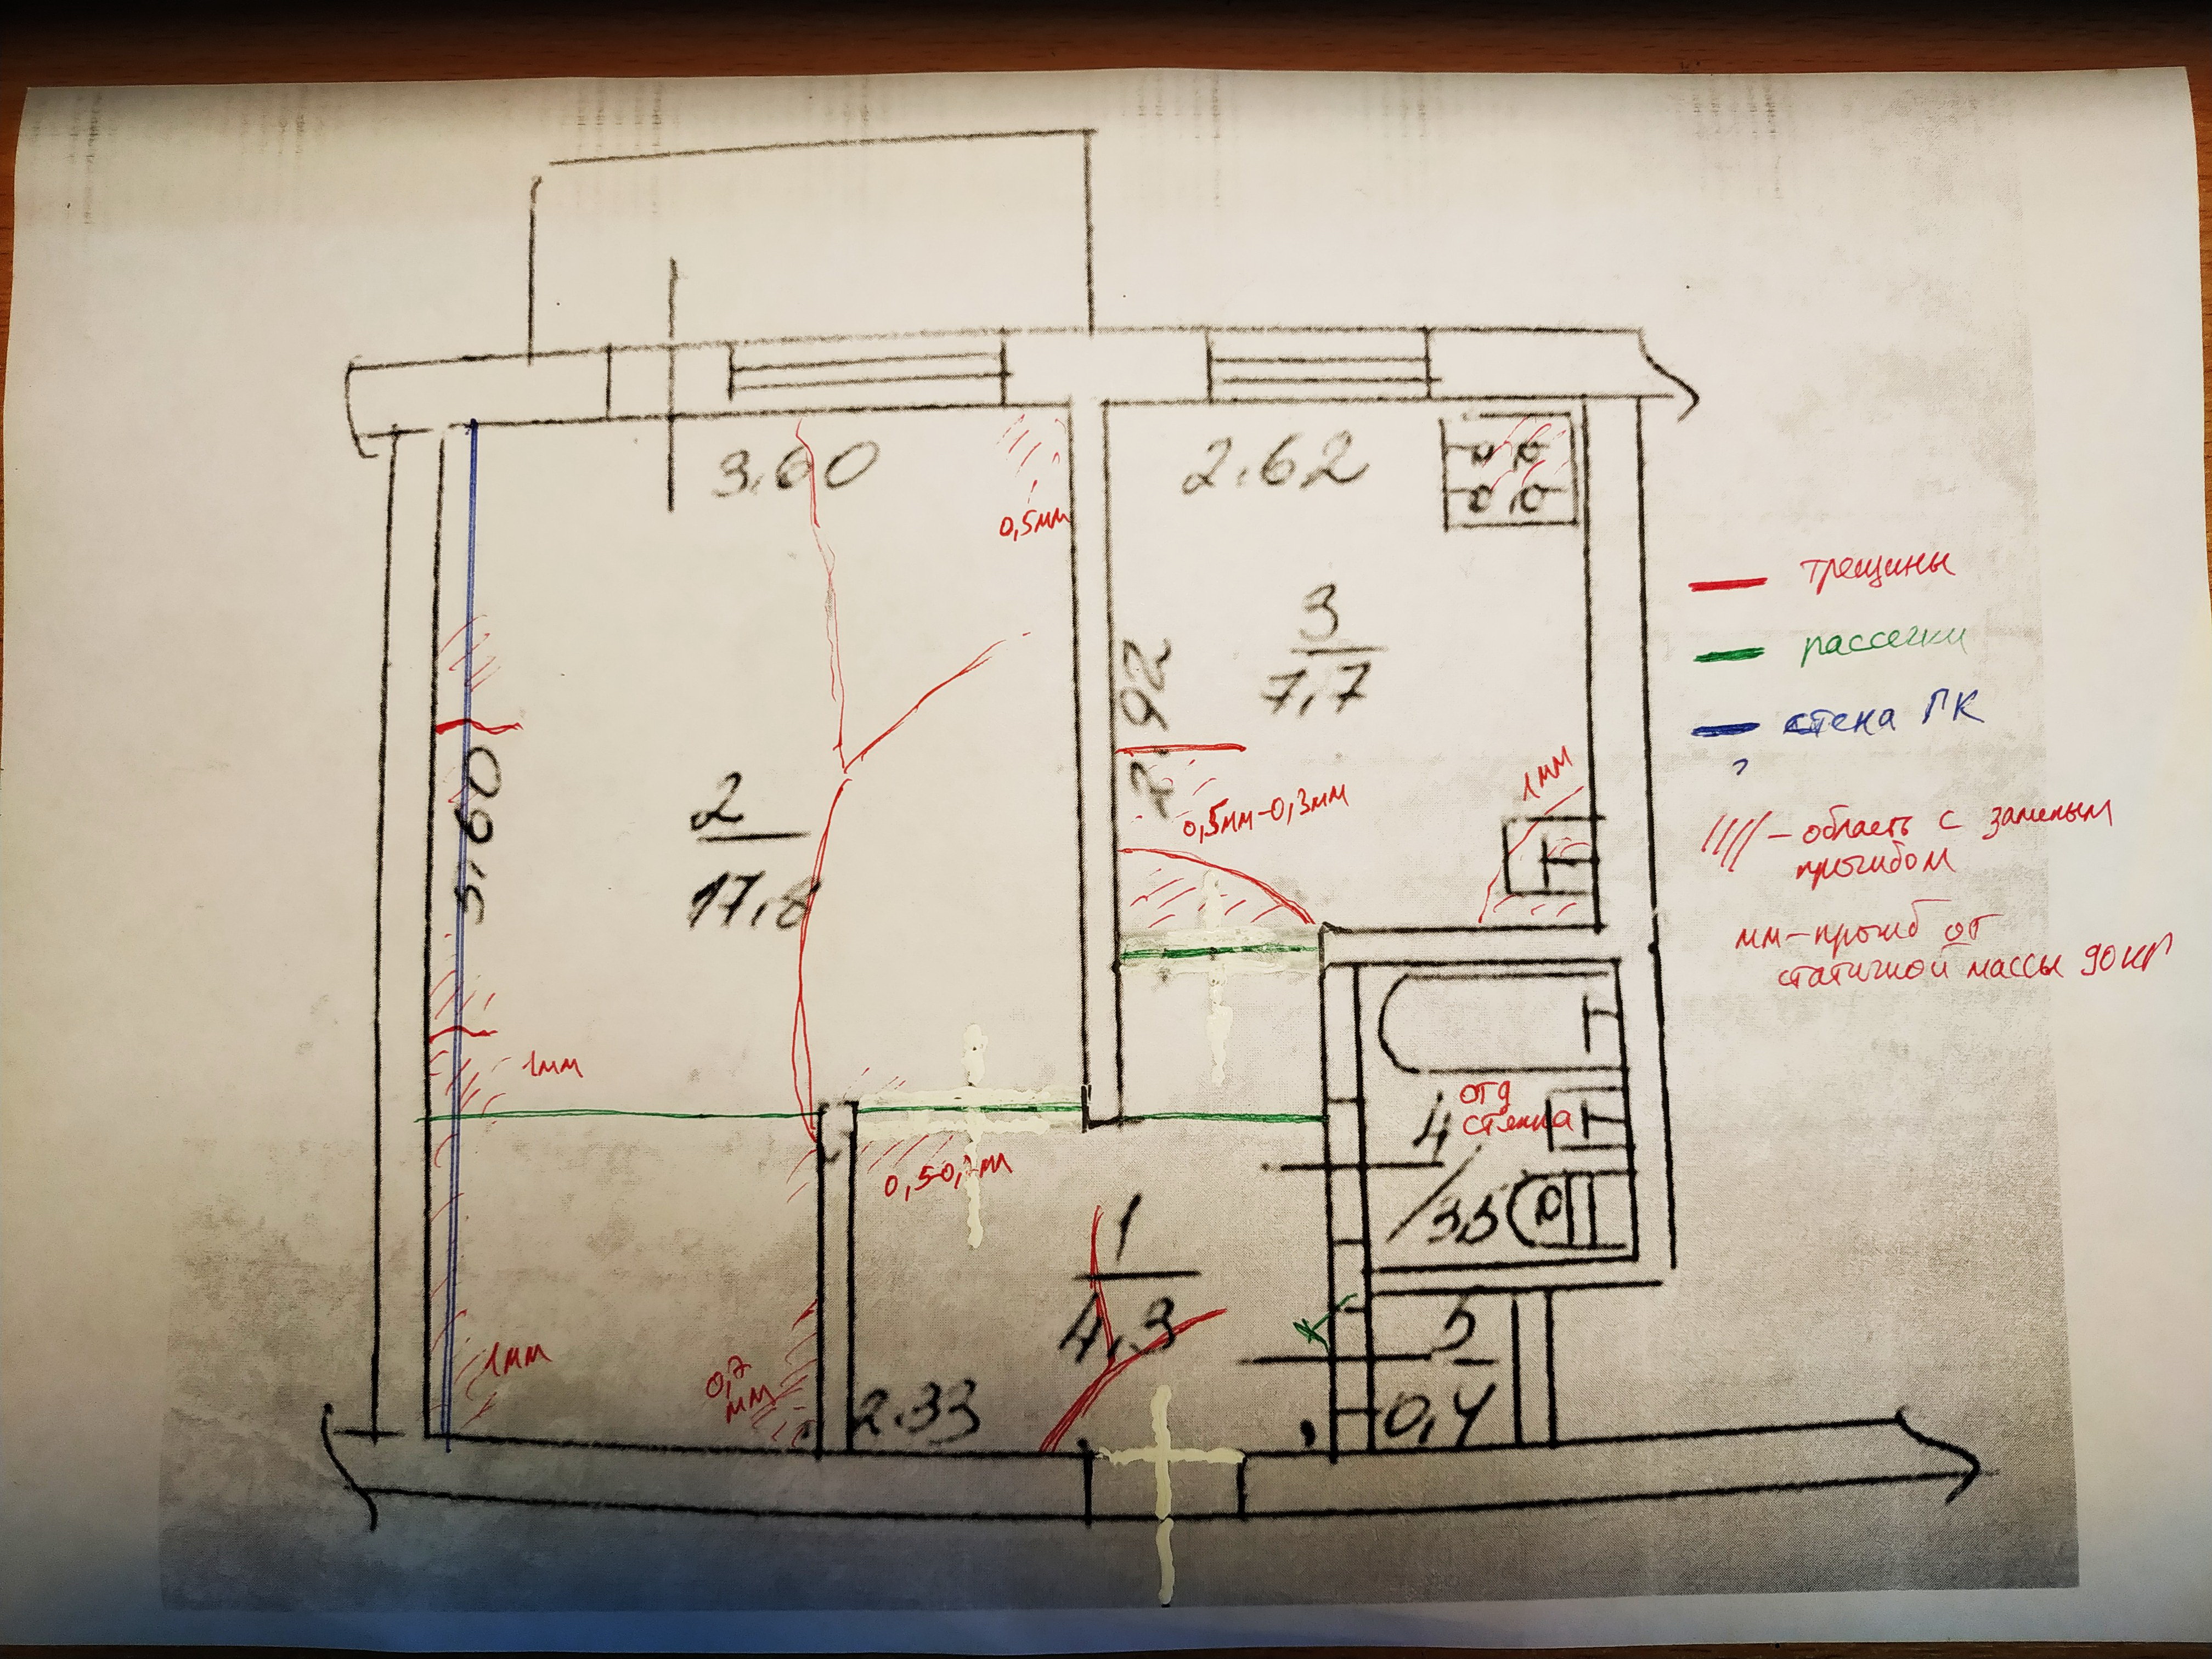 3.60
2.62
0,5мм
трещины
3
7,7
рассечки
2.92
стена ГК
?
1мм
0,5мм-0,3мм
2
17,8
5.60
//// - область с заметным
прогибом
мм-прогиб от
статичной массы 90кг
1мм
отд
стяжка
4
3,5
0,5-0, мм
1
4,3
5
0,4
1мм
0,7
мм
2.33